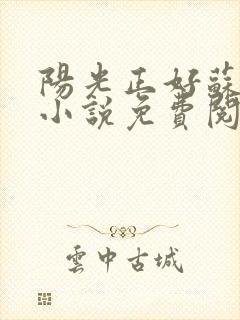 陽光正好蘇
小說免費閱
雲中古城